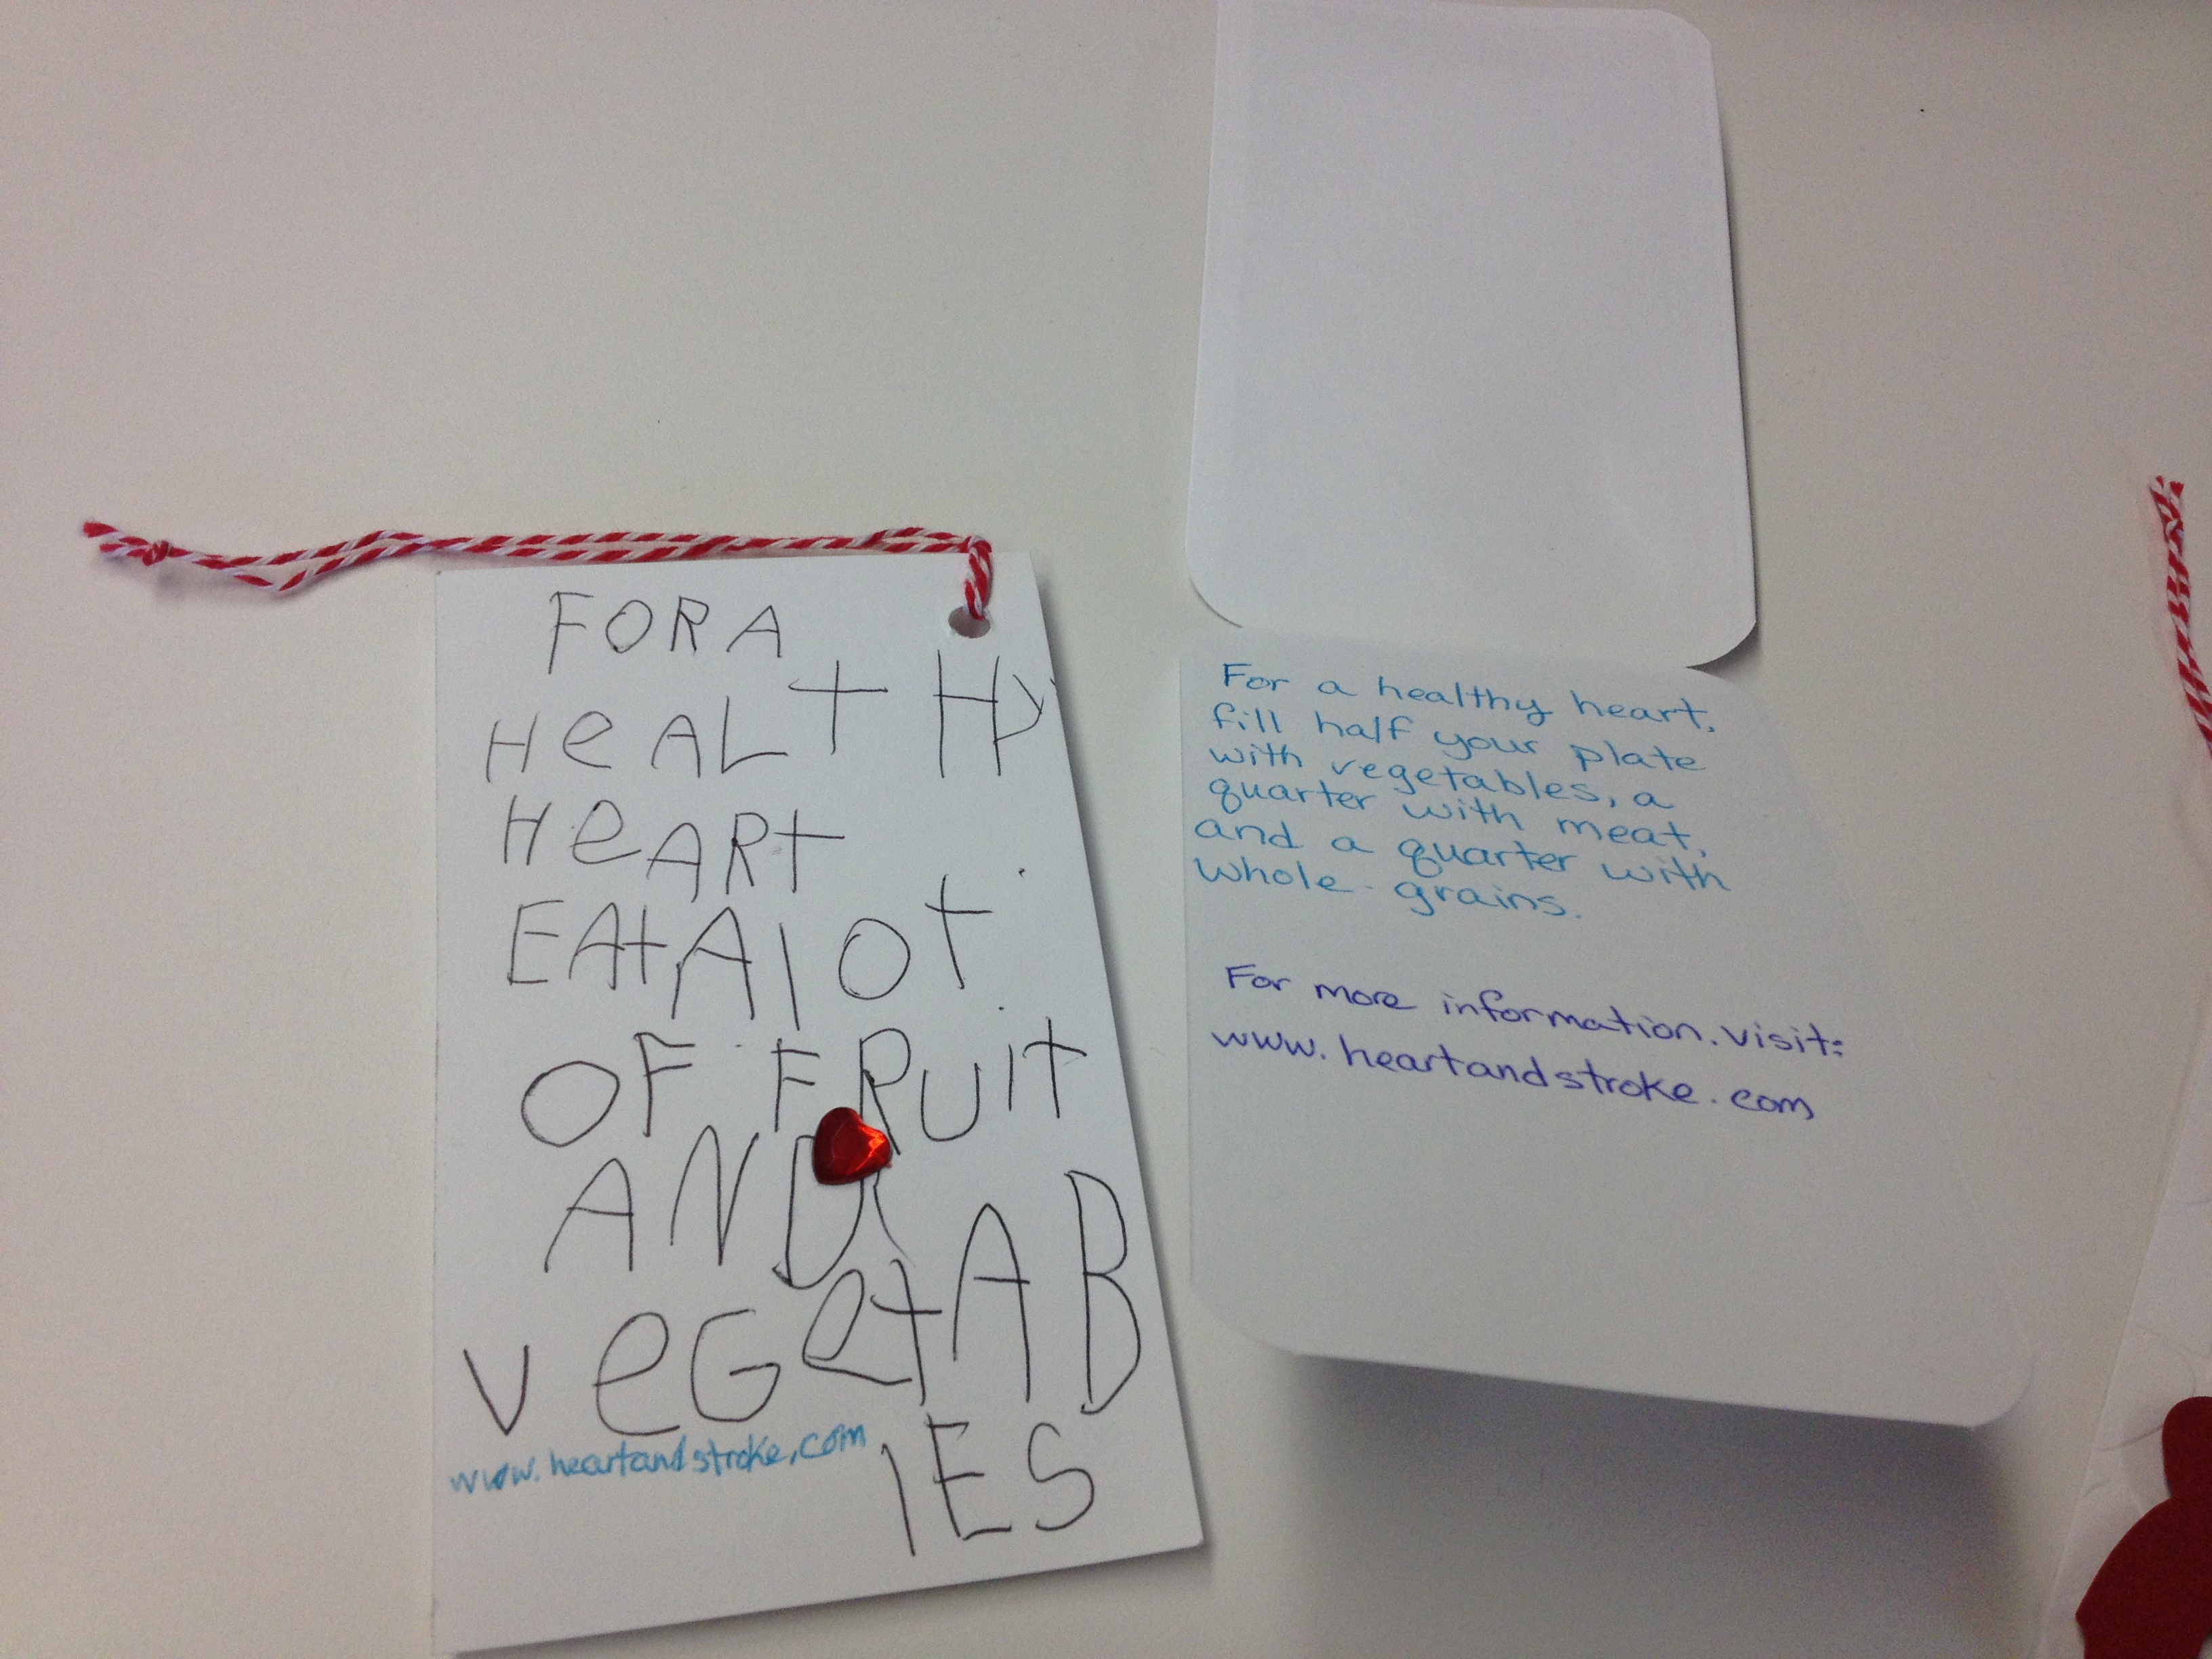 FOR A
HeALtHy
HeARt
EAt A lot
OF FRuit
AND
VeGetAB
lES
www.heartandstroke.com
For a healthy heart,
fill half your plate
with vegetables, a
quarter with meat,
and a quarter with
whole grains.
For more information. visit:
www.heartandstroke.com